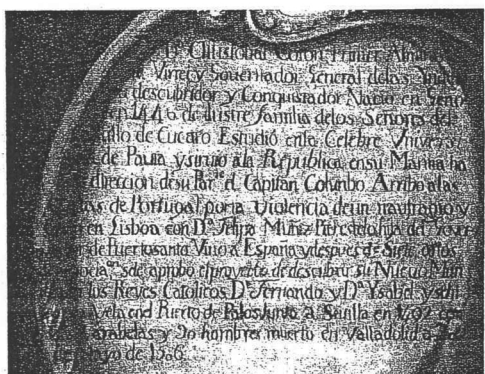 Dⁿ Christobal Colon Primer Almir
Virrey y Governador General delas Indi
descubridor y Conquistador Nacio en Geno
en 1446 de ilustre familia delos Señores del
tillo de Cucaro Estudió enla Celebre Vniversi
de Pauia y siruio ala Republica ensu Marina ba
direccion desu Parᵗᵉ el Capitan Columbo Arribo alas
as de Portugal poria Violencia deun naufragio y
en Lisboa con Dᵃ Felipa Muñiz Pierestelo hija del
de Puertosanta Vino a España y despues de Siete años
sde aprobo el proyecto de descubrir su Nueuo Mun
los Reyes Catolicos Dⁿ Fernando y Dᵃ Ysabel y
Vela end Puerto de Palos Junto a Seuilla en 1492 con
arabelas y 90 hombres muerto en Valladolid a
Mayo de 1506